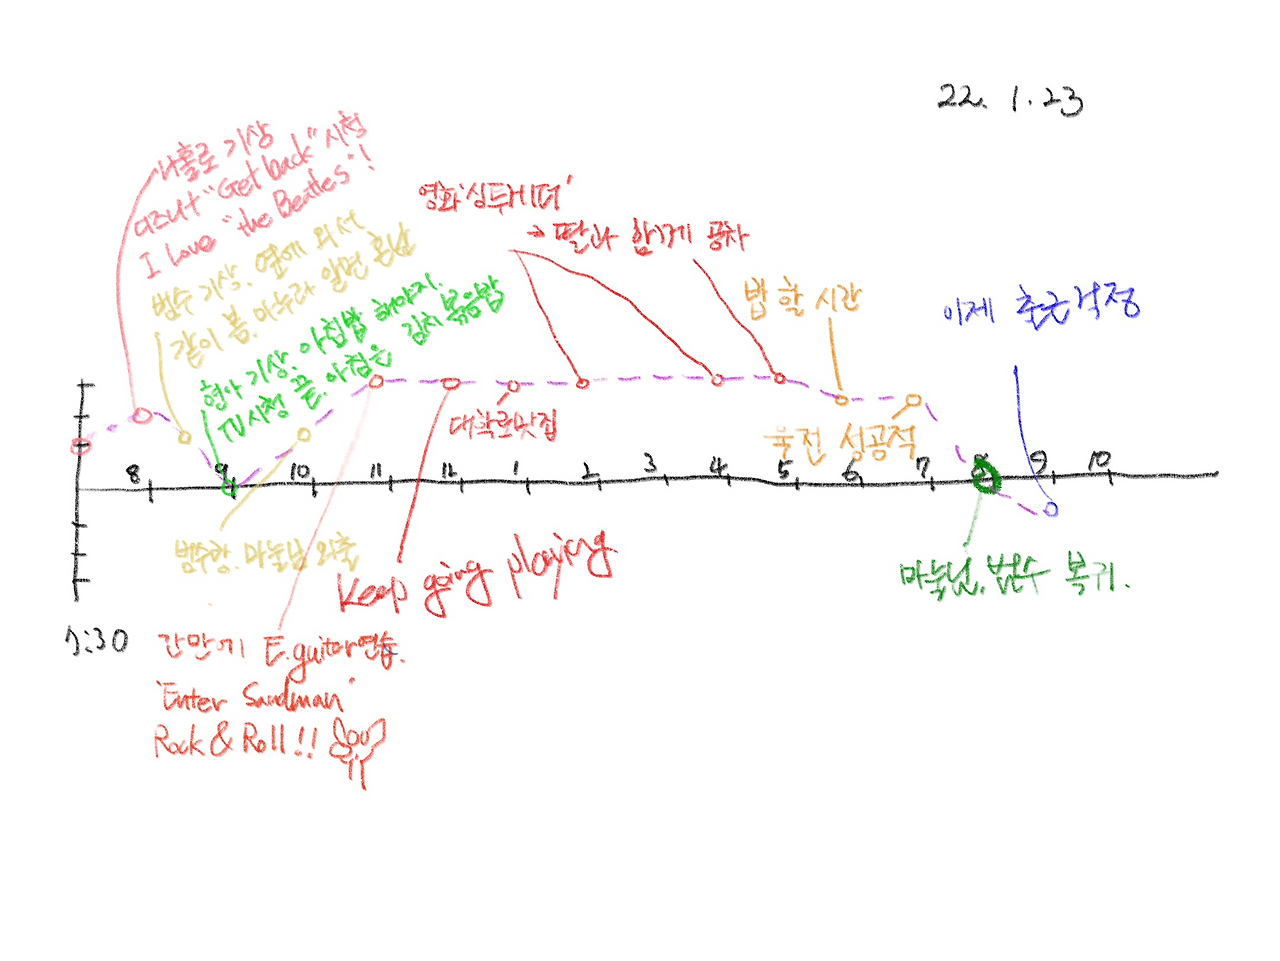 22. 1.23
나홀로 기상
디즈니+ "Get back" 시청
I Love "the Beatles"!
범수 기상. 옆에 와서
같이 봄. 마누라 알면 혼남
형아 기상. 아침밥 해야지.
TV시청 끝. 아침은 김치볶음밥
영화 '싱투게더'
→ 딸과 함께 공차
밥 할 시간
이제 출근걱정
대학로맛집
육전 성공적
8 9 10 11 12 1 2 3 4 5 6 7 8 9 10
마눌님 외출
Keep going playing
마눌님, 범수 복귀.
7:30
간만에 E.guitar연습.
'Enter Sandman'
Rock & Roll!!